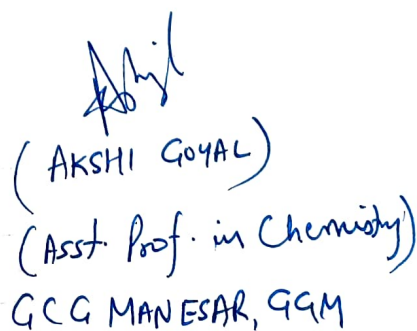 (AKSHI GOYAL)
(Asst. Prof. in Chemistry)
GCG MANESAR, GGM